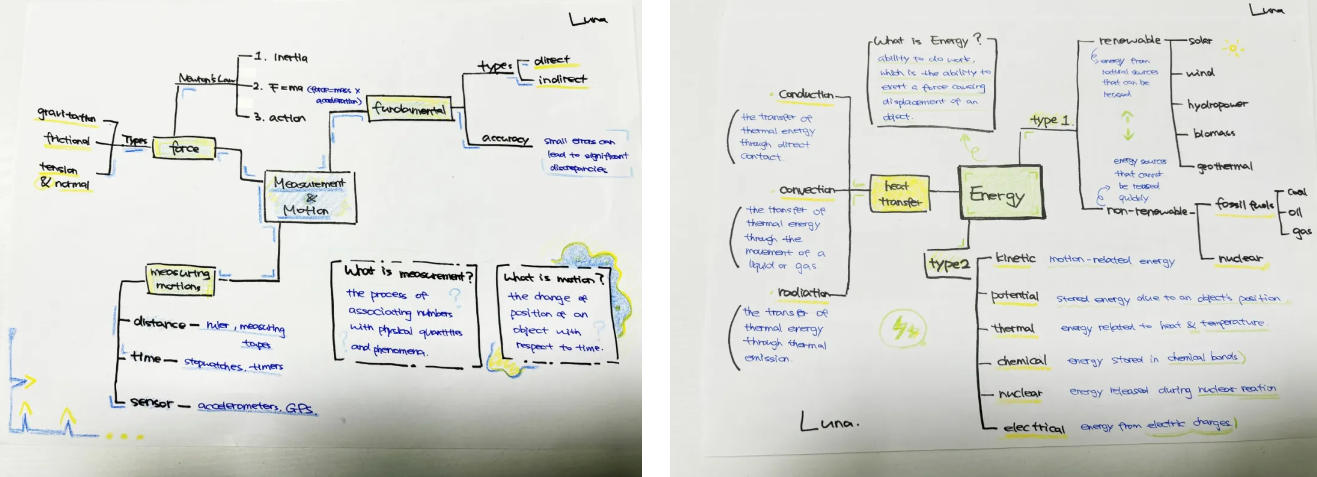 Luna
1. inertia
Newton's Law
2. F=ma (force=mass x
acceleration)
3. action
gravitation
frictional
tension
& normal
Types
force
fundamental
types
direct
indirect
accuracy
small errors can
lead to significant
discrepancies
Measurement
&
Motion
measuring
motions
distance — ruler, measuring
tapes
time — stopwatches, timers
sensor — accelerometers, GPS.
What is measurement?
the process of
associating numbers
with physical quantities
and phenomena.
?
?
What is motion?
the change of
position of an
object with
respect to time.
?
Luna
What is Energy?
ability to do work,
which is the ability to
exert a force causing
displacement of an
object.
conduction
the transfer of
thermal energy
through direct
contact.
convection
the transfer of
thermal energy
through the
movement of a
liquid or gas
radiation
the transfer of
thermal energy
through thermal
emission.
heat
transfer
Energy
type 1.
renewable
energy from
natural sources
that can be
reused
solar
wind
hydropower
biomass
geothermal
energy sources
that cannot
be reused
quickly
non-renewable
fossil fuels
coal
oil
gas
nuclear
type2
kinetic motion-related energy
potential stored energy due to an object's position
thermal energy related to heat & temperature.
chemical energy stored in chemical bonds
nuclear energy released during nuclear reation
electrical energy from electric charges
Luna.